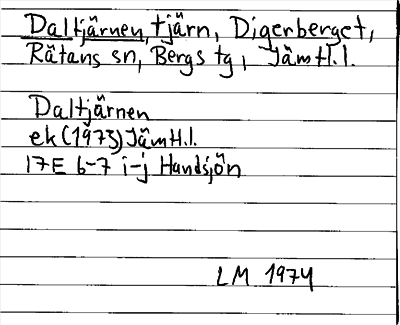 Daltjärnen, tjärn, Digerberget,
Rätans sn, Bergs tg, Jämtl.l.
Daltjärnen
ek (1973) Jämtl.l.
17E 6-7 i-j Handsjön
LM 1974